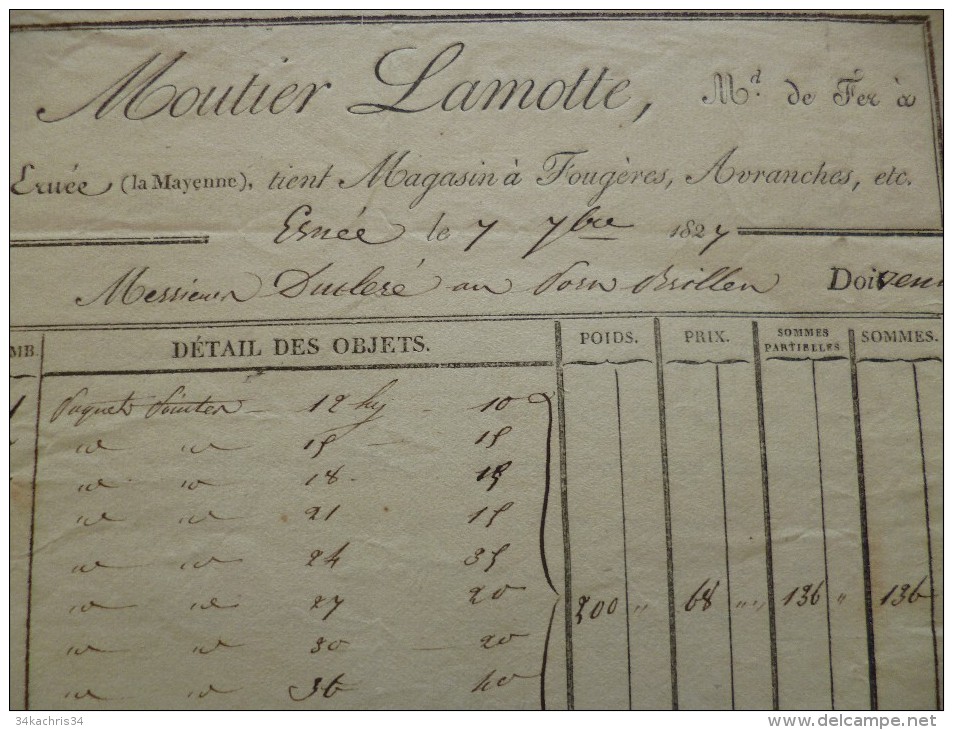 Moutier Lamotte, Md. de Fer à
Ernée (la Mayenne), tient Magasin à Fougères, Avranches, etc.
Ernée le 7 7bre 1827
Messieurs Ducleré au Brillen Doivent
MB. DÉTAIL DES OBJETS. POIDS. PRIX. SOMMES PARTIELLES SOMMES.
1 Paquet Pointes - 12 lig - 10
id id 15 - 15
id id 18 - 15
id id 21 15
id id 24 35
id id 27 20 200 " 68 " " 136 " 136
id id 30 - 20
id id 36 40
34kachris34
www.delcampe.net